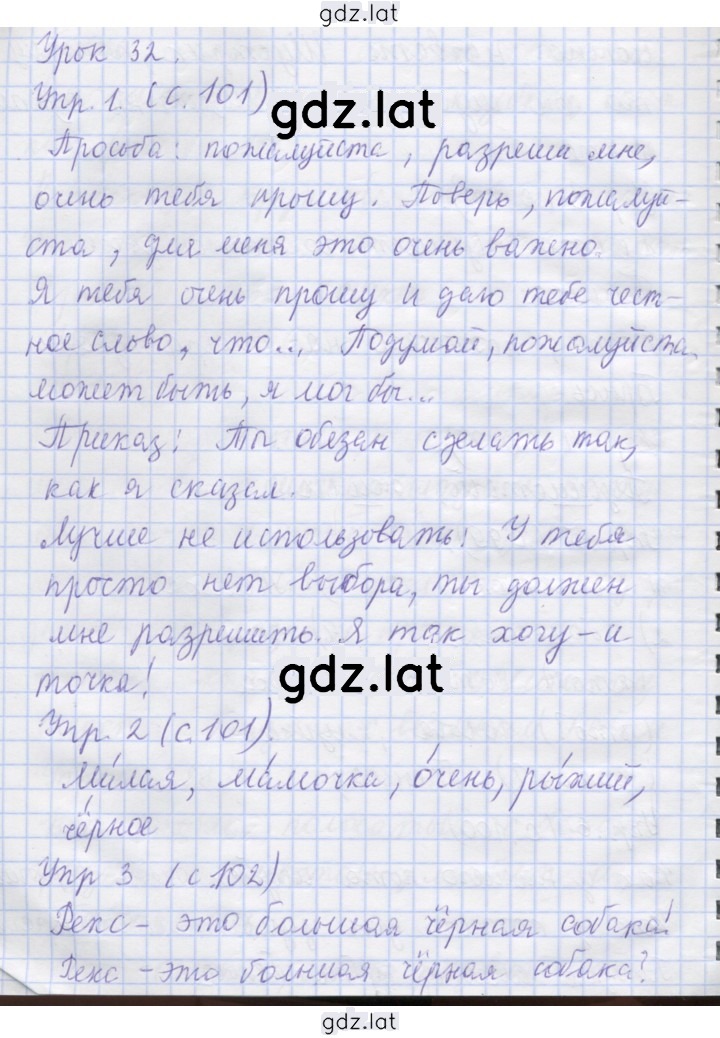 gdz.lat
Урок 32.
Упр. 1. (с. 101)
gdz.lat
Просьба: пожалуйста, разреши мне,
очень тебя прошу. Поверь, пожалуй-
ста, для меня это очень важно.
Я тебя очень прошу и даю тебе чест-
ное слово, что... Подумай, пожалуйста,
может быть, я мог бы...
Приказ: Ты обезан сделать так,
как я сказал.
Лучше не использовать: У тебя
просто нет выбора, ты должен
мне разрешить. Я так хочу - и
gdz.lat
точка!
Упр. 2 (с. 101).
Ми́лая, ма́мочка, о́чень, ры́жий,
чёрное
Упр 3 (с. 102)
Рекс - это большая чёрная собака!
Рекс - это болшая чёрная собака?
gdz.lat